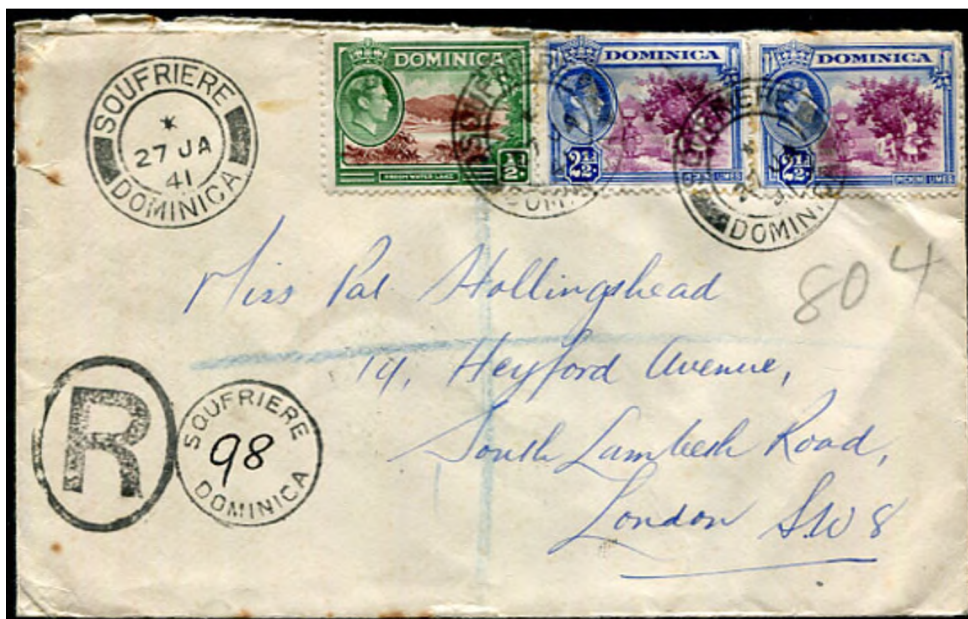 SOUFRIERE
*
27 JA
41
DOMINICA
DOMINICA
½D.
FRESH WATER LAKE
DOMINICA
2½D.
LIMES
DOMINICA
2½D.
PICKING LIMES
DOMINI
804
Miss Pat Hollingshead
14, Heyford Avenue,
South Lambeth Road,
London S.W 8
R
SOUFRIERE
98
DOMINICA